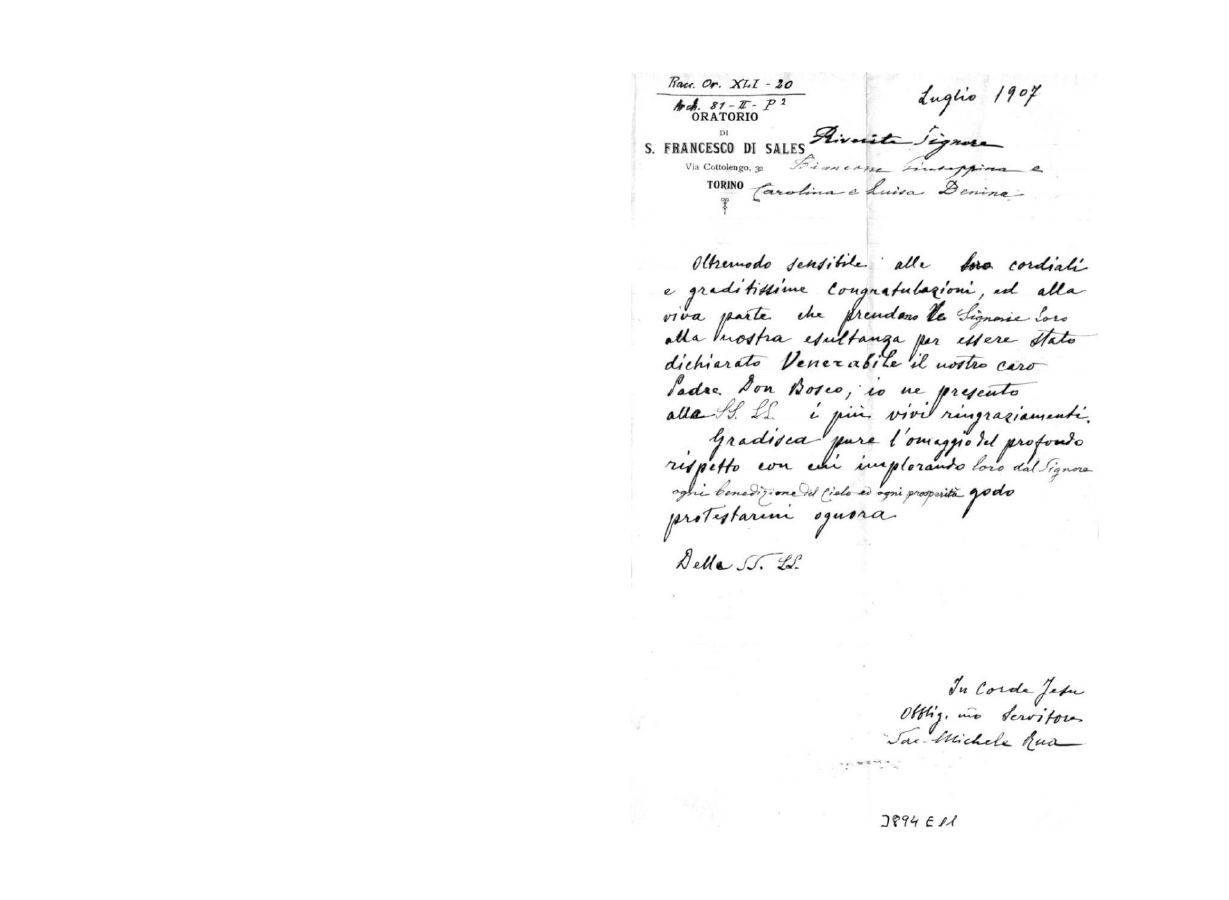 Racc. Or. XLI - 20
Arch. 81 - II - P 2
ORATORIO
DI
S. FRANCESCO DI SALES
Via Cottolengo, 32
TORINO
Luglio 1907
Riverite Signore
Giuseppina e
Carolina e Luisa Denina
Oltremodo sensibile alle loro cordiali
e graditissime congratulazioni, ed alla
viva parte che prendano le Signorie Loro
alla nostra esultanza per essere stato
dichiarato Venerabile il nostro caro
Padre Don Bosco, io ne presento
alle SS. LL. i più vivi ringraziamenti.
Gradisca pure l'omaggio del profondo
rispetto con cui implorando loro dal Signore
ogni benedizione del Cielo ed ogni prosperità godo
protestarmi ognora
Delle SS. LL.
In Corde Jesu
Obblig.mo Servitore
Sac. Michele Rua
3894 E 11